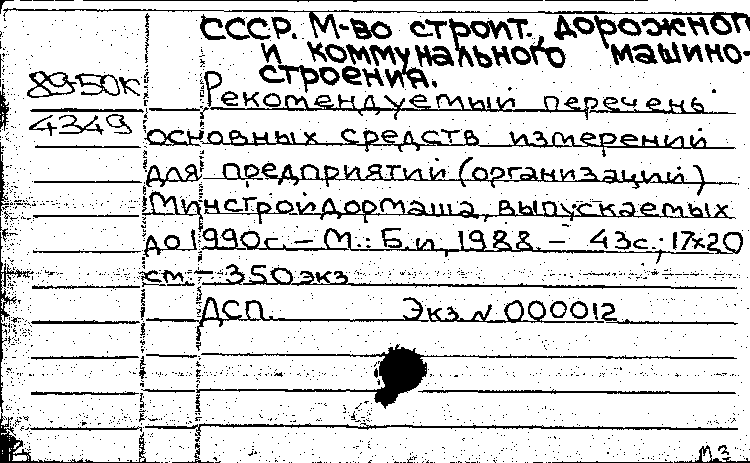 СССР. М-во строит., дорожног
и коммунального машино-
строения.
89-50к
4349
Рекомендуемый перечень
основных средств измерений
для предприятий (организаций)
Минстройдормаша, выпускаемых
до 1990г. – М.: Б.и., 1988. – 43с.; 17x20
см. – 350экз
ДСП. Экз. N 000012
М.З